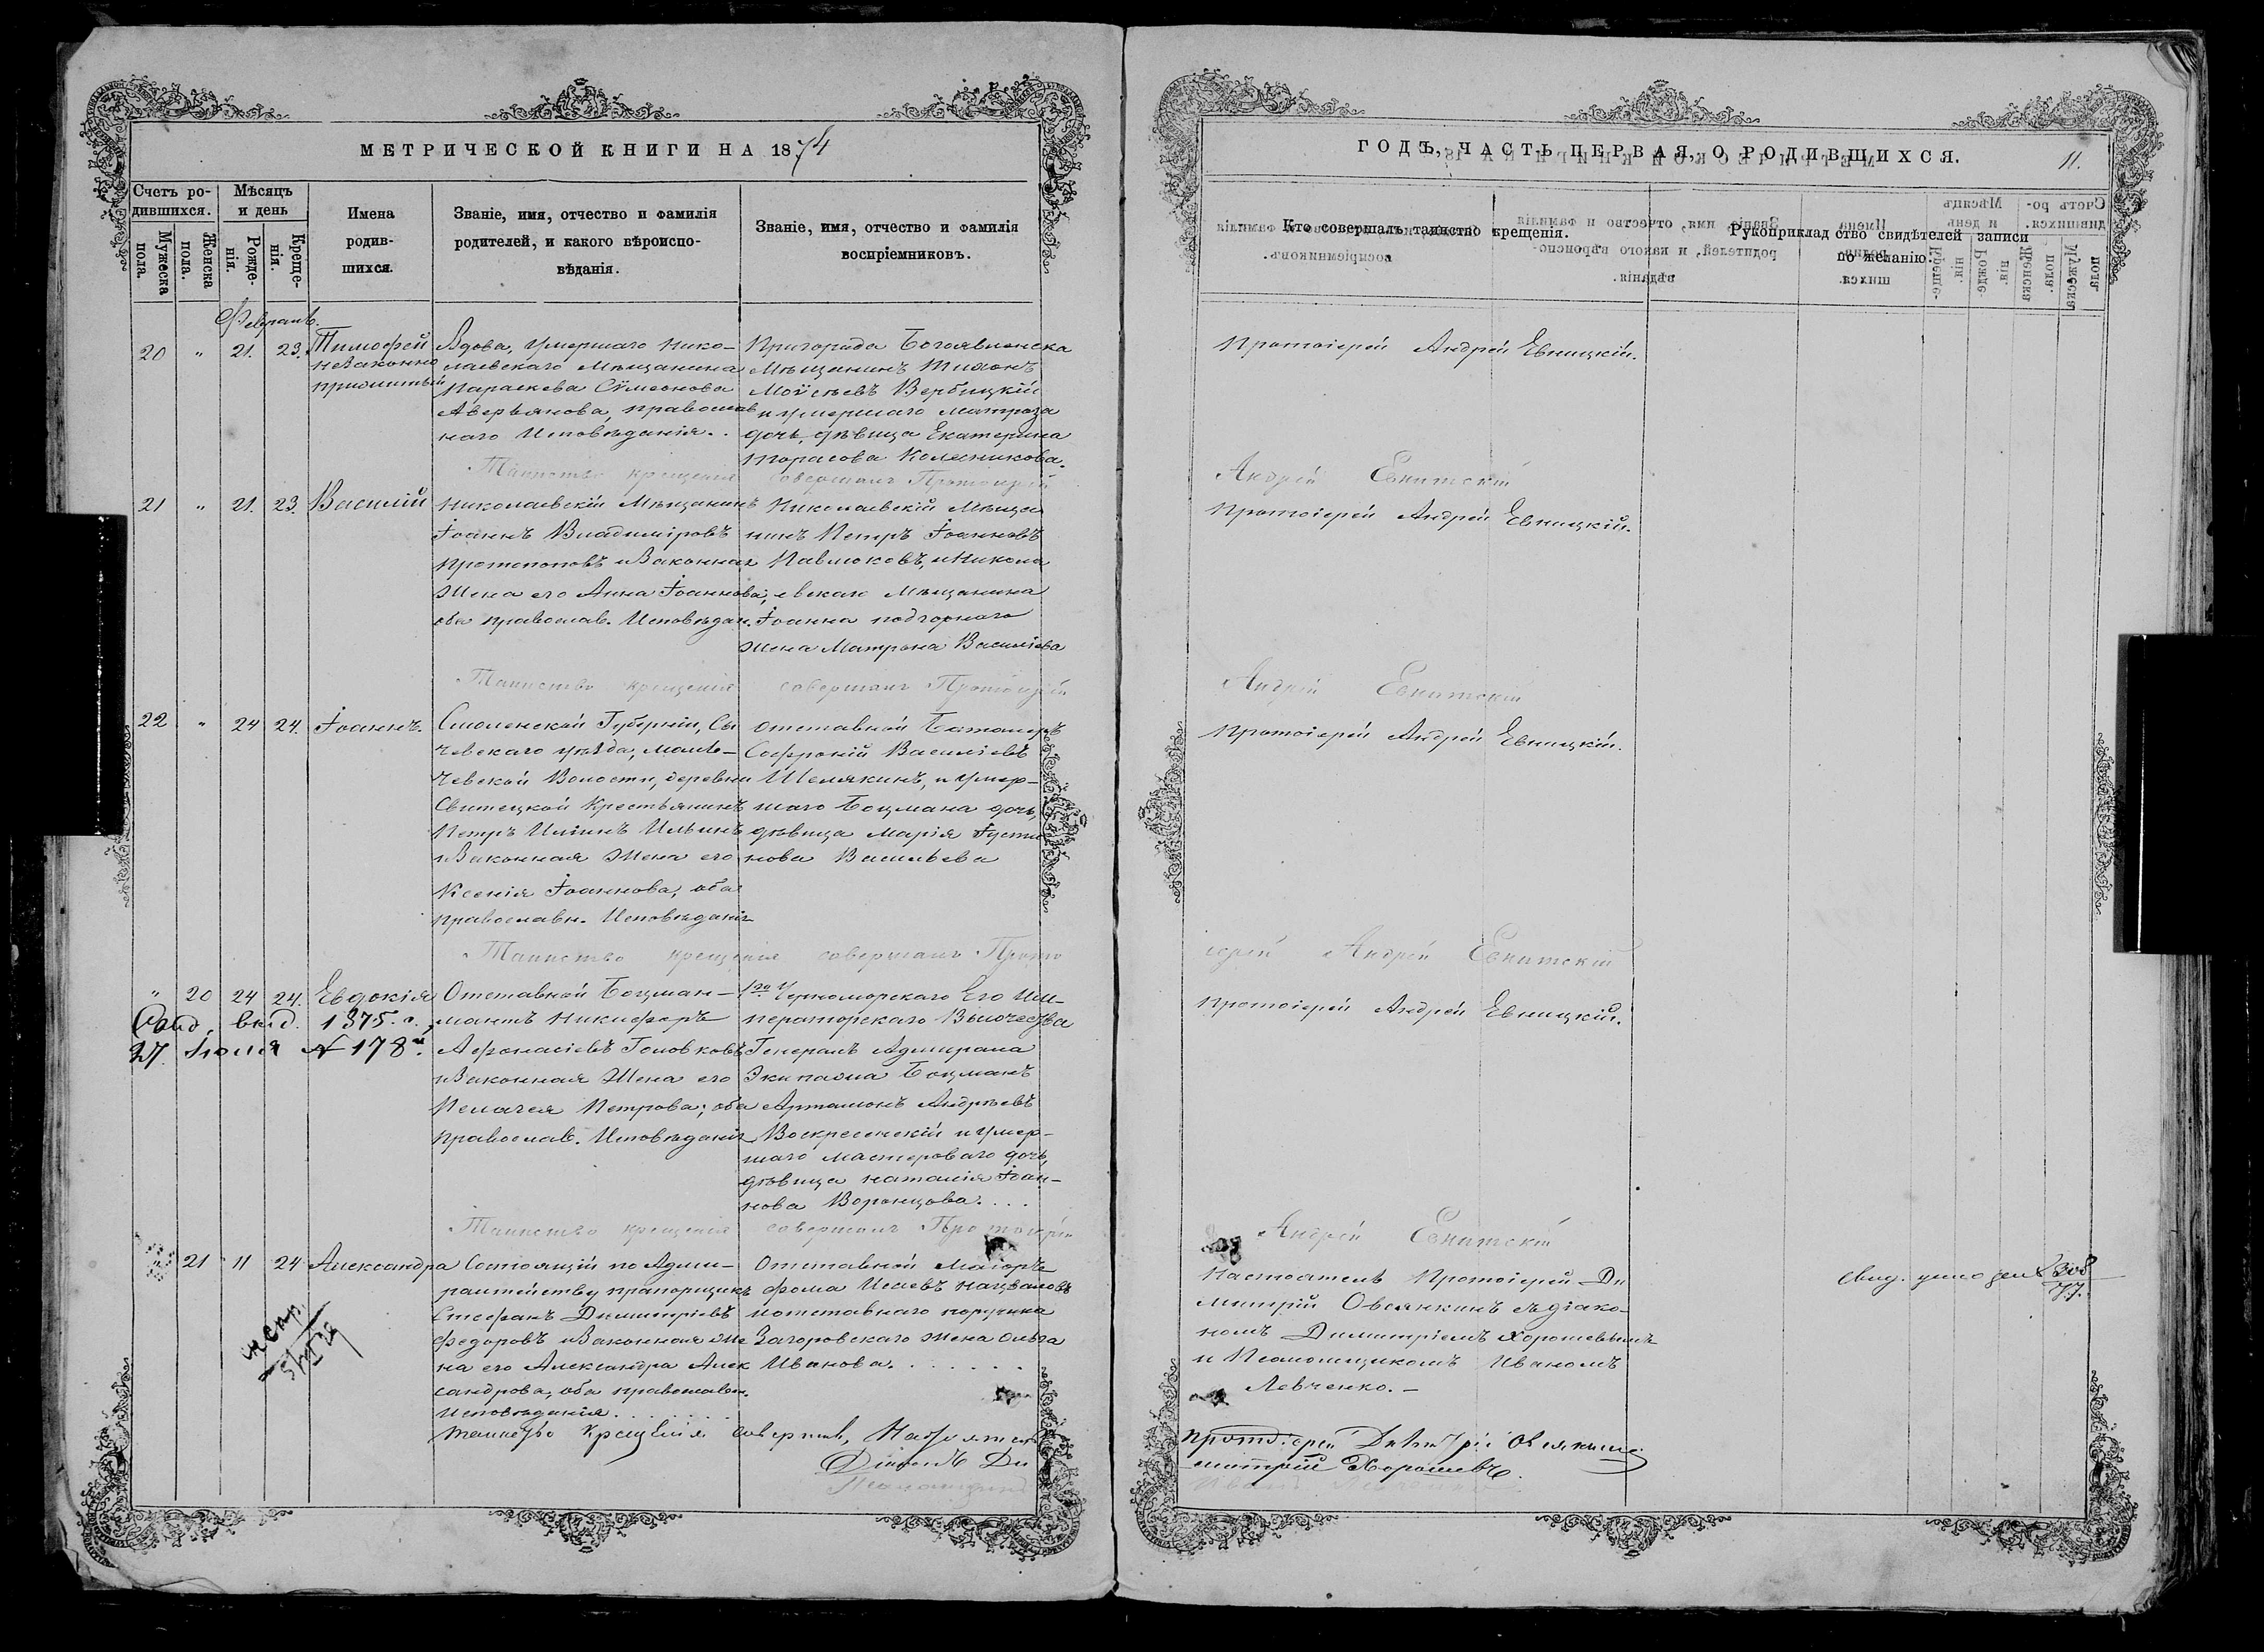 МЕТРИЧЕСКОЙ КНИГИ НА 1874
Счетъ ро-
дившихся.
Мужеска
пола.
Женска
пола.
Мѣсяцъ
и день
Рожде-
нія.
Креще-
нія.
Имена
родив-
шихся.
Званіе, имя, отчество и фамилія
родителей, и какого вѣроиспо-
вѣданія.
Званіе, имя, отчество и фамилія
воспріемниковъ.
Февраль.
20 " 21. 23. Тимофей
незаконно
прижитый
Вдова, умершаго Нико-
лаевскаго Мѣщанина
Параскева Сѵмеонова
Аверьянова, православ
наго Исповѣданія.
Пригорода Богоявленска
Мѣщанинъ Тихонъ
Моѵсеевъ Вербицкій
и умершаго матроза
дочь, дѣвица Екатерина
Тарасова Колесникова.
Таинство крещенія совершалъ Протоіерей
21 " 21. 23. Василій
Николаевскій Мѣщанинъ
Іоаннъ Владиміровъ
Протопоповъ и законная
Жена его Анна Іоаннова;
оба православ. Исповѣдан.
Николаевскій Мѣща
нинъ Петръ Іоанновъ
Павлюковъ, и Никола
евскаго Мѣщанина
Іоанна Подгорнаго
жена Матрона Василіева
Таинство крещенія совершалъ Протоіерей
22 " 24 24. Іоаннъ.
Смоленской Губерніи, Сы
чевскаго уѣзда,
чевской Волости, деревни
Свитецкой Крестьянинъ
Петръ Иліинъ Ильинъ
и законная Жена его
Ксенія Іоаннова, оба
православн. Исповѣданія
Отставной Баталеръ
Софроній Василіевъ
Шелякинъ, и умер-
шаго Боцмана дочь,
дѣвица Марія Іусти
нова Васильева
Таинство крещенія совершалъ Прото
" 20 24 24. Евдокія
вид. 1875. г.
27 Іюля N 178.
Отставной Боцман-
матъ Никифоръ
Афонасіевъ Головковъ
и законная Жена его
Пелагея Петрова; оба
православ. Исповѣданія
1го Черноморскаго Его Им-
ператорскаго Высочества
Генералъ Адмирала
Экипажа Боцманъ
Артамонъ Андреевъ
Воскресенскій и умер-
шаго мастероваго дочь,
дѣвица Наталія Іоан-
нова Воронцова. . . .
Таинство крещенія совершалъ Протоіерей
" 21 11 24 Александра
Состоящій по Адми-
ралтейству прапорщикъ
Стефанъ Димитріевъ
Федоровъ и законная же
на его Александра Алек
сандрова, оба православн.
Исповѣданія. . . . . . .
Отставной Маіоръ
Фома Исаевъ Нацваловъ
и отставнаго поручика
Загоровскаго жена Ольга
Иванова. . . . . . .
Таинство Крещенія совершилъ, Настоятель
Діаконъ Ди
Псаломщикъ
ГОДЪ, ЧАСТЬ ПЕРВАЯ, О РОДИВШИХСЯ.
11.
Кто совершалъ таинство крещенія.
Рукоприкладство свидѣтелей записи
по желанію.
Протоіерей Андрей Евницкій.
Андрей Евнитскій
Протоіерей Андрей Евницкій.
Андрей Евнитскій
Протоіерей Андрей Евницкій.
іерей Андрей Евнитскій
Протоіерей Андрей Евницкій.
Андрей Евнитскій
Настоятель Протоіерей Ди
митрій Овсянкинъ съ діако-
номъ Димитріемъ Хорошевымъ
и Псаломщикомъ Иваномъ
Левченко. –
Протоіерей Димитрій Овсянкинъ
митрій Хорошевъ.
Иванъ
свид. N 308
77.